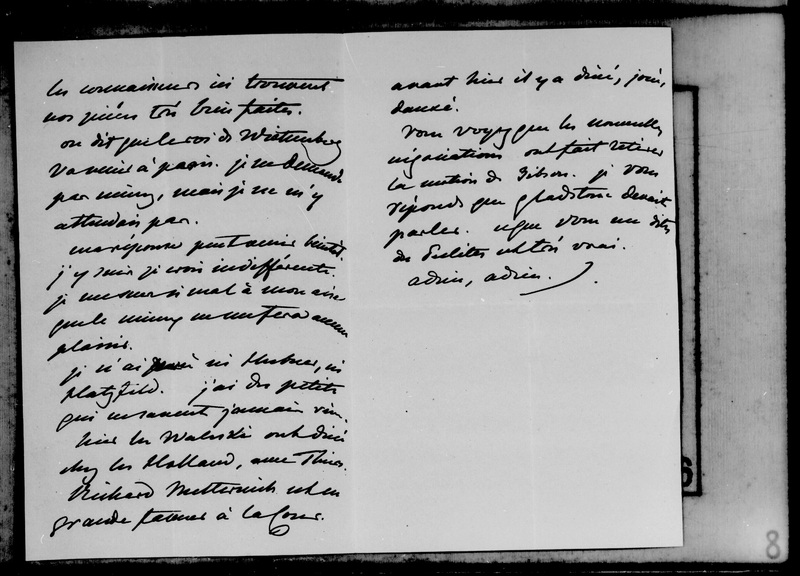 les connaisseurs ici trouvent
nos pièces très bien faites.
on dit que le roi de Wurtemberg
va venir à paris. je ne demande
pas mieux, mais je ne m'y
attendais pas.
ma réponse peut venir bientôt.
j'y suis je crois indifférente.
je me sens si mal à mon aise
que le mieux ne me fera aucun
plaisir.
je n'ai ni Hubner, ni
Hatzfeld. j'ai des petits
qui ne savent jamais rien.
hier les Walewski ont diné
chez les Holland, avec Thiers.
Richard Metternich est en
grande faveur à la Cour.
avant hier il y a diné, joué,
dansé.
Vous voyez que les nouvelles
négociations ont fait retirer
la motion de Gibson. je vous
réponds que gladstone devait
parler. ce que vous me dites
des est très vrai.
adieu, adieu.
8